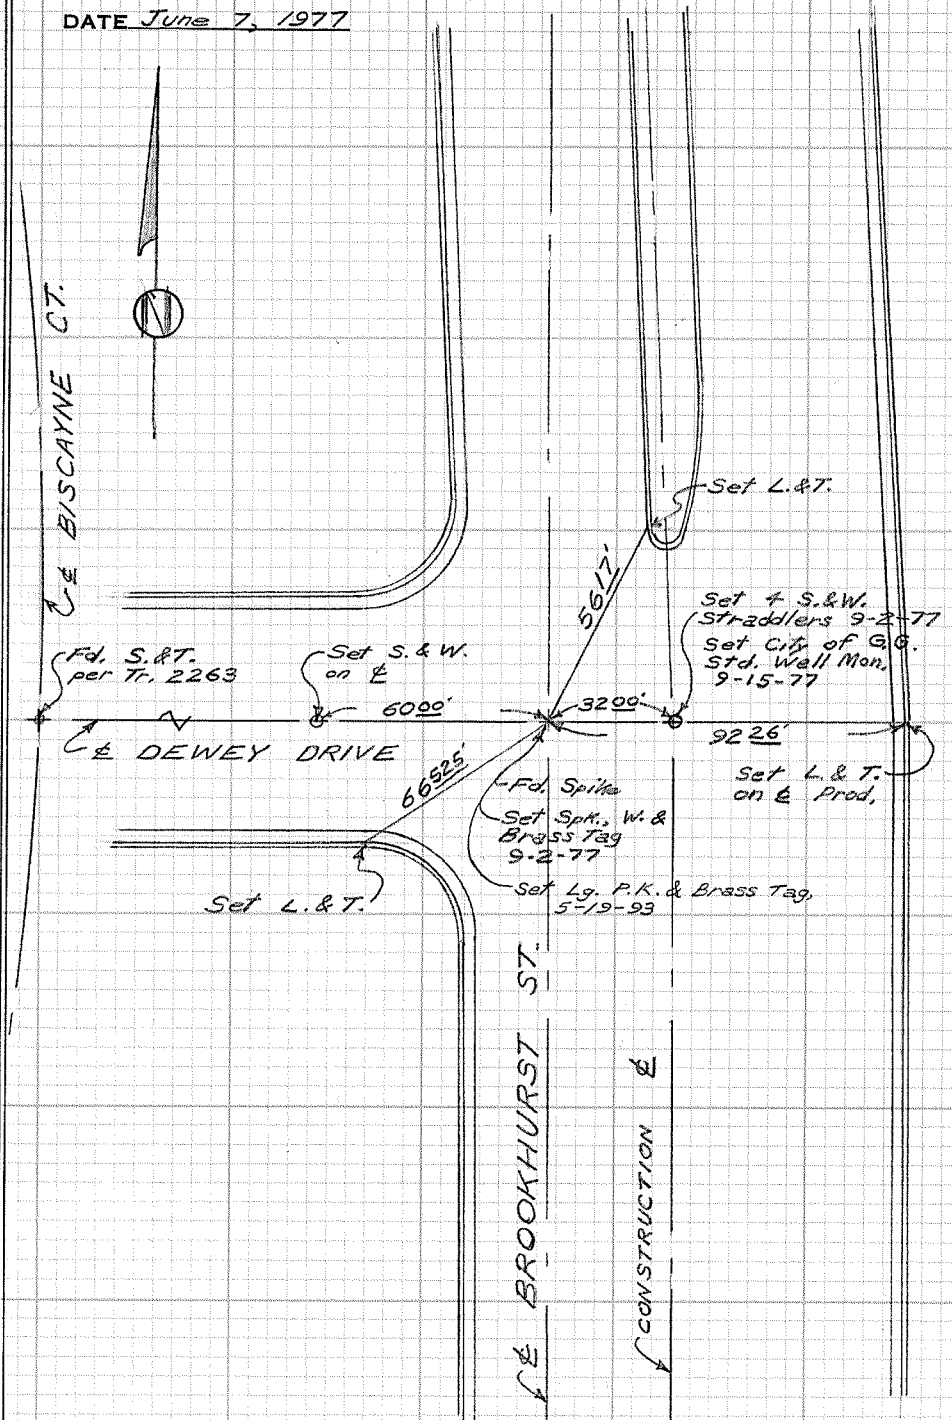 DATE June 7, 1977
℄ BISCAYNE CT.
Set L.&T.
56 17'
Set 4 S.&W.
Straddlers 9-2-77
Set City of G.G.
Std. Well Mon.
9-15-77
Fd. S.&T.
per Tr. 2263
Set S.&W.
on ℄
60 00'
32 00'
92 26'
℄ DEWEY DRIVE
66 525'
Set L.&T.
on ℄ Prod.
Fd. Spike
Set Spk., W. &
Brass Tag
9-2-77
Set Lg. P.K. & Brass Tag,
5-19-93
Set L.&T.
℄ BROOKHURST ST.
CONSTRUCTION ℄